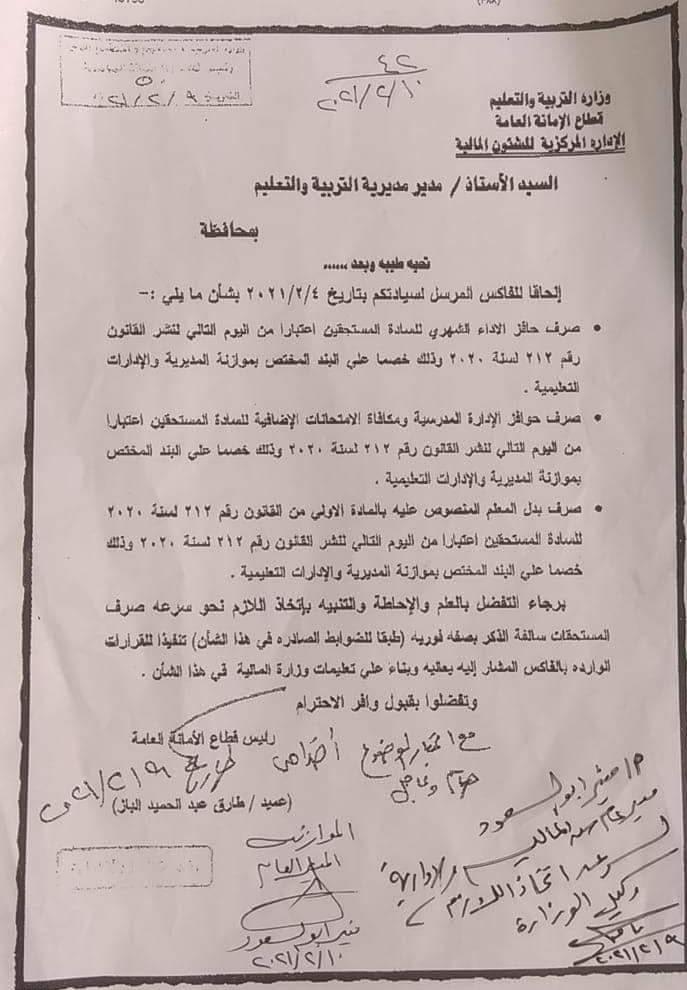 ٤٢
٢٠٢١/٢/١٠
٢٠٢١/٢/٩
وزارة التربية والتعليم
قطاع الإمانة العامة
الإداره المركزية للشئون المالية
السيد الأستاذ / مدير مديرية التربية والتعليم
بمحافظة
تحيه طيبه وبعد ......
إلحاقا للفاكس المرسل لسيادتكم بتاريخ ٢٠٢١/٢/٤ بشأن ما يلي :-
• صرف حافز الاداء الشهري للسادة المستحقين اعتبارا من اليوم التالي لنشر القانون
رقم ٢١٢ لسنة ٢٠٢٠ وذلك خصما علي البند المختص بموازنة المديرية والإدارات
التعليمية .
• صرف حوافز الإدارة المدرسية ومكافاة الامتحانات الإضافية للسادة المستحقين اعتبارا
من اليوم التالي لنشر القانون رقم ٢١٢ لسنة ٢٠٢٠ وذلك خصما علي البند المختص
بموازنة المديرية والإدارات التعليمية .
• صرف بدل المعلم المنصوص عليه بالمادة الاولي من القانون رقم ٢١٢ لسنة ٢٠٢٠
للسادة المستحقين اعتبارا من اليوم التالي لنشر القانون رقم ٢١٢ لسنة ٢٠٢٠ وذلك
خصما علي البند المختص بموازنة المديرية والإدارات التعليمية .
برجاء التفضل بالعلم والإحاطة والتنبيه بإتخاذ اللازم نحو سرعه صرف
المستحقات سالفة الذكر بصفه فوريه (طبقا للضوابط الصادره في هذا الشأن) تنفيذا للقرارات
الوارده بالفاكس المشار إليه بعاليه وبناء علي تعليمات وزارة المالية في هذا الشأن .
وتفضلوا بقبول وافر الاحترام
رئيس قطاع الأمانة العامة
مع اعتبار الموضوع
هام وعاجل
٢٠٢١/٢/٩
(عميد / طارق عبد الحميد الباز)
الموازنة
المدير العام
منير ابو السعود
٢٠٢١/٢/١٠
م/ منير ابو السعود
مدير عام المالية والادارية
لسرعة اتخاذ اللازم
وكيل الوزارة
٢٠٢١/٢/٩